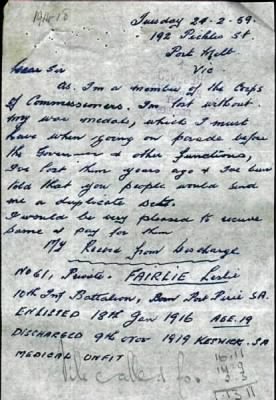 Tuesday 24-2-59.
192 Pickles St
Port Melb
Vic.
Dear Sir
As. I'm a member of the Corps
of Commissioners. I'm lost without
my war medals, which I must
have when going on parade before
the Governor & other functions,
I've lost them years ago & I've been
told that you people would send
me a duplicate Sets.
I would be very pleased to receive
same & pay for them
My Record from Discharge
No 61, Private. FAIRLIE Leslie
10th Inf Battalion, Born Port Pirie SA.
ENLISTED 18th Jan 1916 AGE.19
DISCHARGED 9th Nov 1919 KESWICK. SA
MEDICAL UNFIT
File called for